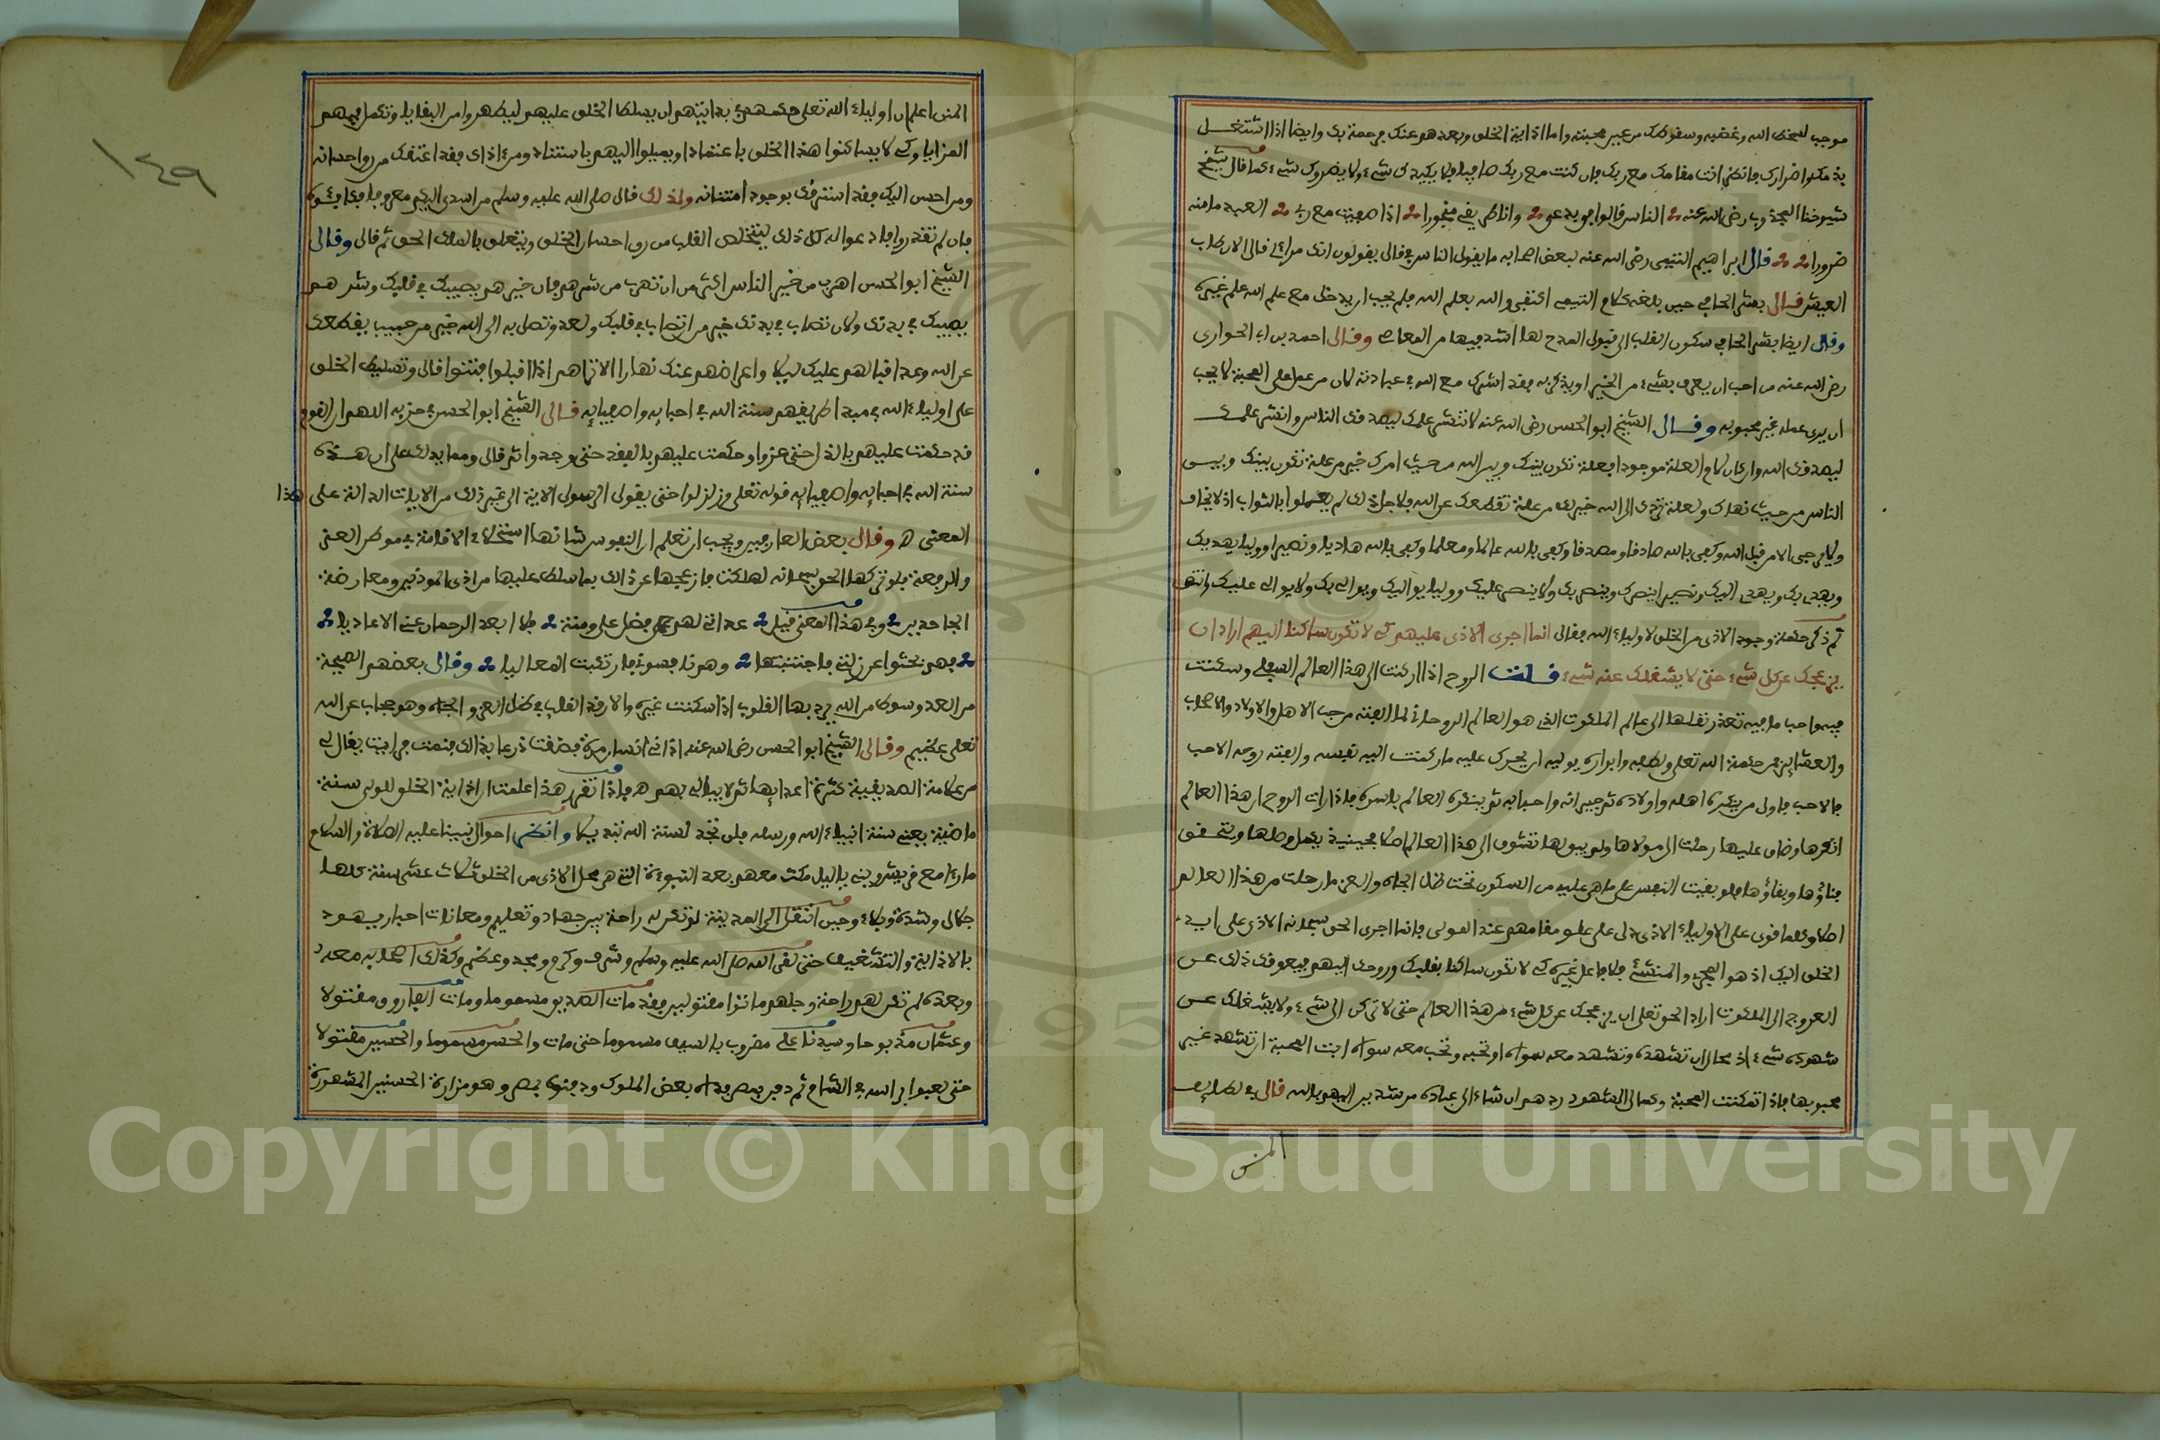 موجب لسخط الله وغضبه وسقوطك من عين محبته واما اذاية الخلق وبعدهم عنك فرحمة بك وايضا اذا اشتغل
بذمك واضرارك فانظر انت مقامك مع ربك فان كنت مع ربك صافيا فلا يكيدك شيء ولا يضروك شيء كما قال شيخ
شيوخنا المجذوب رضي الله عنه الناس قالوا لي بدعي وانا طريقي منجورا اذا صفيت مع ربي العبد ما منه
ضرورا قال ابراهيم التيمي رضي الله عنه لبعض اصحابه ما يقول الناس في قال يقولون انك مراءي قال الان طاب
العيش قال بشر الحافي حين بلغه كلام التيمي اكتفى والله بعلم الله فلم يحب ان يدخل مع علم الله علم غيره
وقال ايضا بشر الحافي سكون القلب الى قبول المدح لها اشد فيها من المعاصي وقال احمد بن ابي الحواري
رضي الله عنه من احب ان يعرف بشيء من الخير او يذكر به فقد اشرك مع الله في عبادته لان من عمل على المحبة لا يحب
ان يرى عمله غير محبوبه وقال الشيخ ابو الحسن رضي الله عنه لا تنشر علمك ليصدقك الناس وانشر علمك
ليصدقك الله وان كان لام العلة موجودا فعلة تكون بينك وبين الله من حيث امرك خير من علة تكون بينك وبين
الناس من حيث نهاك ولعلة تردك الى الله خير لك من علة تقطعك عن الله ولاجل ذلك لم يعملوا بالثواب اذ لا يخاف
ولا يرجى الا من قبل الله وكفى بالله صادقا ومصدقا وكفى بالله عالما ومعلما وكفى بالله هاديا ونصيرا ووليا يهديك
ويهدي بك ويهدي اليك ونصيرا ينصرك وينصر بك ولا ينصر عليك ووليا يواليك ويوالي بك ولا يوالي عليك وانتهى
ثم ذكر حكمة وجود الاذى من الخلق لاولياء الله فقال انما اجرى الاذى عليهم كي لا تكون ساكنا اليهم اراد ان
يزعجك عن كل شيء حتى لا يشغلك عنه شيء قلت الروح اذا ركنت الى هذا العالم السفلي وسكنت
فيه واحب ما فيه تعذر نقلها الى عالم الملكوت الذي هو العالم الروحاني لما الفته من حب الاهل والاولاد والاصحاب
والعشاير من حكمة الله تعلى ولطفه وابراره بوليه ان يحرك عليه ما ركنت اليه نفسه والفته روحه الاحب
فالاحب فاولى من ينكره اهله واولاده ثم جيرانه واحبابه ثم ينكره العالم باسره فاذا رات الروح ان هذا العالم
انكرها وضاق عليها رحلت الى مولاها ولم يبق لها تشوف الى هذا العالم اصلا فحينئذ يكمل وصلها ويتحقق
فناؤها وبقاؤها فلو بقيت النفس على ما هي عليه من السكون تحت ظل الجاه والعز ما رحلت من هذا العالم
اصلا وكلما قوى على الاولياء الاذى دل على علو مقامهم عند المولى فانما اجرى الحق سبحانه الاذى على ايدي
الخلق اليك اذ هو المجري والمنشئ فلا فاعل غيره كي لا تكون ساكنا بقلبك وروحك اليهم فيعوقك ذلك عن
العروج الى الملكوت اراد الحق تعلى ان يزعجك عن كل شيء من هذا العالم حتى لا تركن الى شيء ولا يشغلك عن
شهوده شيء اذ محال ان تشهده وتشهد معه سواه او تحبه وتحب معه سواه ابت المحبة ان تشهد غير
محبوبها فاذا تمكنت المحبة وكمال الشهود ردهم ان شاء الى عباده مرشدين اليه بالله قال في لطايف
المنن
المنن اعلم ان اولياء الله تعلى حكمهم في بدايتهم ان يسلط الخلق عليهم ليطهروا من البقايا وتكمل فيهم
المزايا وكي لا يساكنوا هذا الخلق باعتماد او يميلوا اليهم باستناد ومن اذاك فقد اعتقك من رق احسانه
ومن احسن اليك فقد استرقك بوجود امتنانه ولذلك قال صلى الله عليه وسلم من اسدى اليكم معروفا فكافئوه
فان لم تقدروا فادعوا له كل ذلك ليتخلص القلب من رق احسان الخلق وليتعلق بالملك الحق ثم قال وقال
الشيخ ابو الحسن اهرب من خير الناس اكثر من ان تهرب من شرهم فان خيرهم يصيبك في قلبك وشرهم
يصيبك في بدنك ولان تصاب في بدنك خير من ان تصاب في قلبك ولعدو تصل به الى الله خير من حبيب يقطعك
عن الله وعد اقبالهم عليك ليلا واعراضهم عنك نهارا الا تراهم اذا اقبلوا فتنوا قال وتسليط الخلق
على اولياء الله في مبدا طريقهم سنة الله في احبابه واصفيائه قال الشيخ ابو الحسن في حزبه اللهم ان القوم
قد حكمت عليهم بالذل حتى عزوا وحكمت عليهم بالفقد حتى وجدوا ثم قال ومما يدلك على ان هذه
سنة الله في احبابه واصفيائه قوله تعلى وزلزلوا حتى يقول الرسول الاية الى غير ذلك من الايات الدالة على هذا
المعنى ه وقال بعض العارفين ويجب ان تعلم ان النفوس شانها استحلاء الاقامة في موطن العز
والرفعة فلو تركها الحق سبحانه لهلكت فازعجها عن ذلك بما سلط عليها من اذى الموذين ومعارضة
الجاحدين وفي هذا المعنى قيل عداتي لهم فضل علي ومنة فلا ابعد الرحمان عني الاعاديا
فهم بحثوا عن زلتي فاجتنبتها وهم نافسوني فارتكبت المعاليا وقال بعضهم الصيحة
من العدو سوط من الله يرد بها القلوب اذا سكنت غيره والا رقد القلب في ظل العز والجاه وهو حجاب عن الله
تعلى عظيم وقال الشيخ ابو الحسن رضي الله عنه اذاني انسان مرة فضقت ذرعا بذلك فنمت فرايت يقال لي
من علامة الصديقية كثرة اعدايها ثم لا يبالي بهم ه فاذا تقرر هذا علمت ان اذاية الخلق للولي سنة
ماضية يعني سنة انبياء الله ورسله فلن تجد لسنة الله تبديلا وانظر احوال نبينا عليه الصلاة والسلام
ما راى مع قريش وبني باليل مكث معهم بعد النبوءة التي هي محل الاذى من الخلق ثلاث عشر سنة كلها
جلال وشدة وبلاء وحين انتقل الى المدينة لم تكن له راحة بين جهاد وتعليم ومعانات احبار يهود
بالاذاية والتشغيب حتى لقي الله صلى الله عليه وسلم وشرف وكرم ومجد وعظم وكذلك اصحابه معه
وبعده لم تكن لهم راحة وجلهم ماتوا مقتولين فقد مات الصديق مسموما ومات الفاروق مقتولا
وعثمان مذبوحا وسيدنا علي مضروب بالسيف مسموما حتى مات والحسن مسموما والحسين مقتولا
حتى لعبوا براسه في الشام ثم دفن بمصر فداه بعض الملوك ودفنوه بمصر وهو مزارة الحسنين المشهورة
١٤٩
Copyright © King Saud University
1957